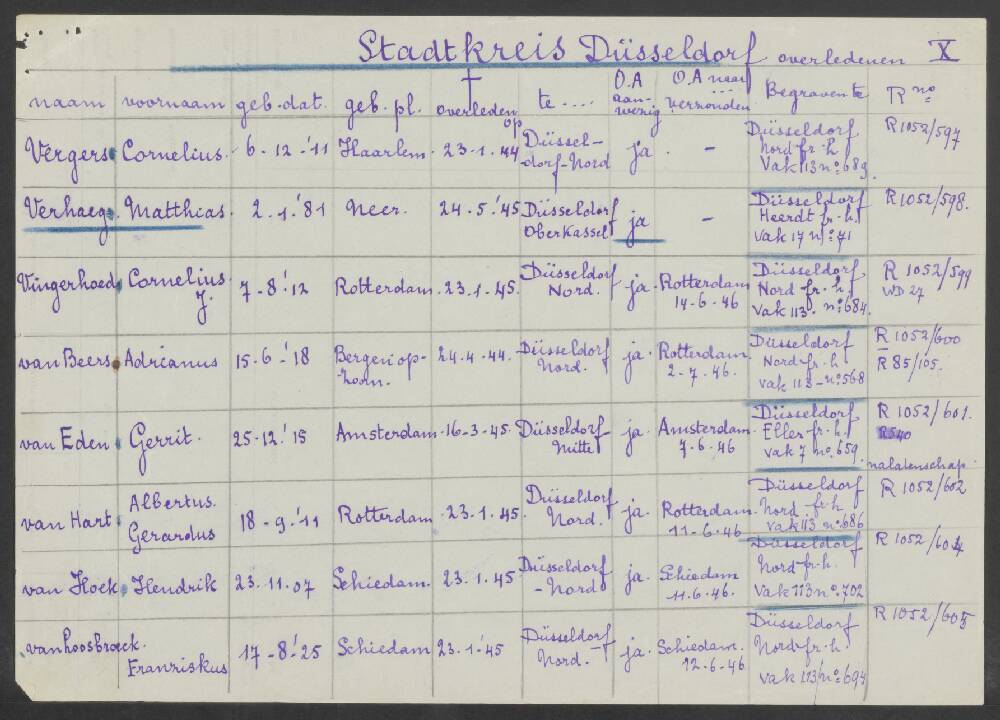 Stadtkreis Düsseldorf overledenen X
naam voornaam geb. dat. geb. pl. † overleden op te .... O.A aan-wezig O.A naar ... verzonden Begraven te R no
Vergers Cornelius. 6-12-'11 Haarlem. 23-1-'44 Düssel-dorf-Nord ja - Düsseldorf Nord-fr-h Vak 113 no: 689. R 1052/597
Verhaeg. Matthias. 2-1-'81 Neer. 24-5-'45 Düsseldorf Oberkassel ja - Düsseldorf Heerdt fr-h. Vak 17 no: 71 R 1052/598.
Vingerhoed Cornelius J. 7-8-'12 Rotterdam. 23-1-45. Düsseldorf Nord. ja. Rotterdam 14-6-46 Düsseldorf Nord-fr-h. Vak 113. no: 684. R 1052/599 WD 27
van Beers Adrianus 15-6-'18 Bergen op-zoom. 24-4-44. Düsseldorf Nord. ja. Rotterdam 2-7-46. Düsseldorf Nord-fr-h vak 113-no: 568 R 1052/600 R 85/105.
van Eden Gerrit. 25-12-'15 Amsterdam. 16-3-45. Düsseldorf-Mitte ja. Amsterdam 7-6-46 Düsseldorf Eller-fr-h. vak 7 no. 659. R 1052/601. nalatenschap
van Hart. Albertus. Gerardus 18-9-'11 Rotterdam. 23.1.45. Düsseldorf Nord. ja. Rotterdam 11-6-46 Düsseldorf Nord-fr-h vak 113 no: 686 R 1052/602
van Hoek Hendrik 23.11.07 Schiedam. 23.1.45 Düsseldorf-Nord ja. Schiedam 11.6.46. Düsseldorf Nord-fr-h. Vak 113 no: 702 R 1052/604
van Loosbroeck. Franziskus 17-8-'25 Schiedam 23-1-'45 Düsseldorf-Nord. ja. Schiedam. 12.6-46 Düsseldorf Nord-fr-h. vak 113/no: 694 R 1052/605